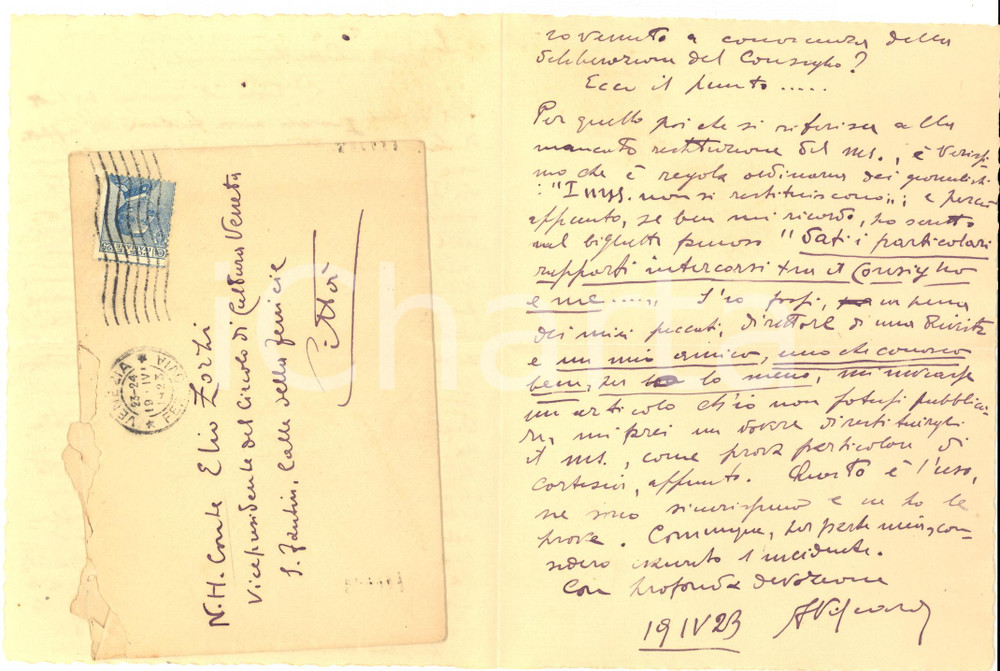 N. H. Conte Elio Zorzi
Vicepresidente del Circolo di Cultura Veneta
S. Fantin, Calle della Fenice
Città
VENEZIA
23-24
19 IV
iCharta
venuto a conoscenza della
deliberazione del Consiglio?
Ecco il punto .....
Per quello poi che si riferisce alla
mancata restituzione del ms., è verissi
mo che è regola ordinaria dei giornalisti
: "I mss. non si restituiscono"; e perciò
appunto, se ben mi ricordo, ho scritto
nel biglietto famoso "dati i particolari
rapporti intercorsi tra il Consiglio
e me ....., S'io fossi, in pena
dei miei peccati, direttore di una Rivista
e un mio amico, uno che conosco
bene, per lo meno, mi inviasse
un articolo ch'io non potessi pubblica
re, mi farei un dovere di restituirgli
il ms., come prova particolare di
cortesia, appunto. Questo è l'uso,
ne sono sicurissimo e ne ho le
prove. Comunque, per parte mia, con
sidero esaurito l'incidente.
Con profonda devozione
19 IV 23